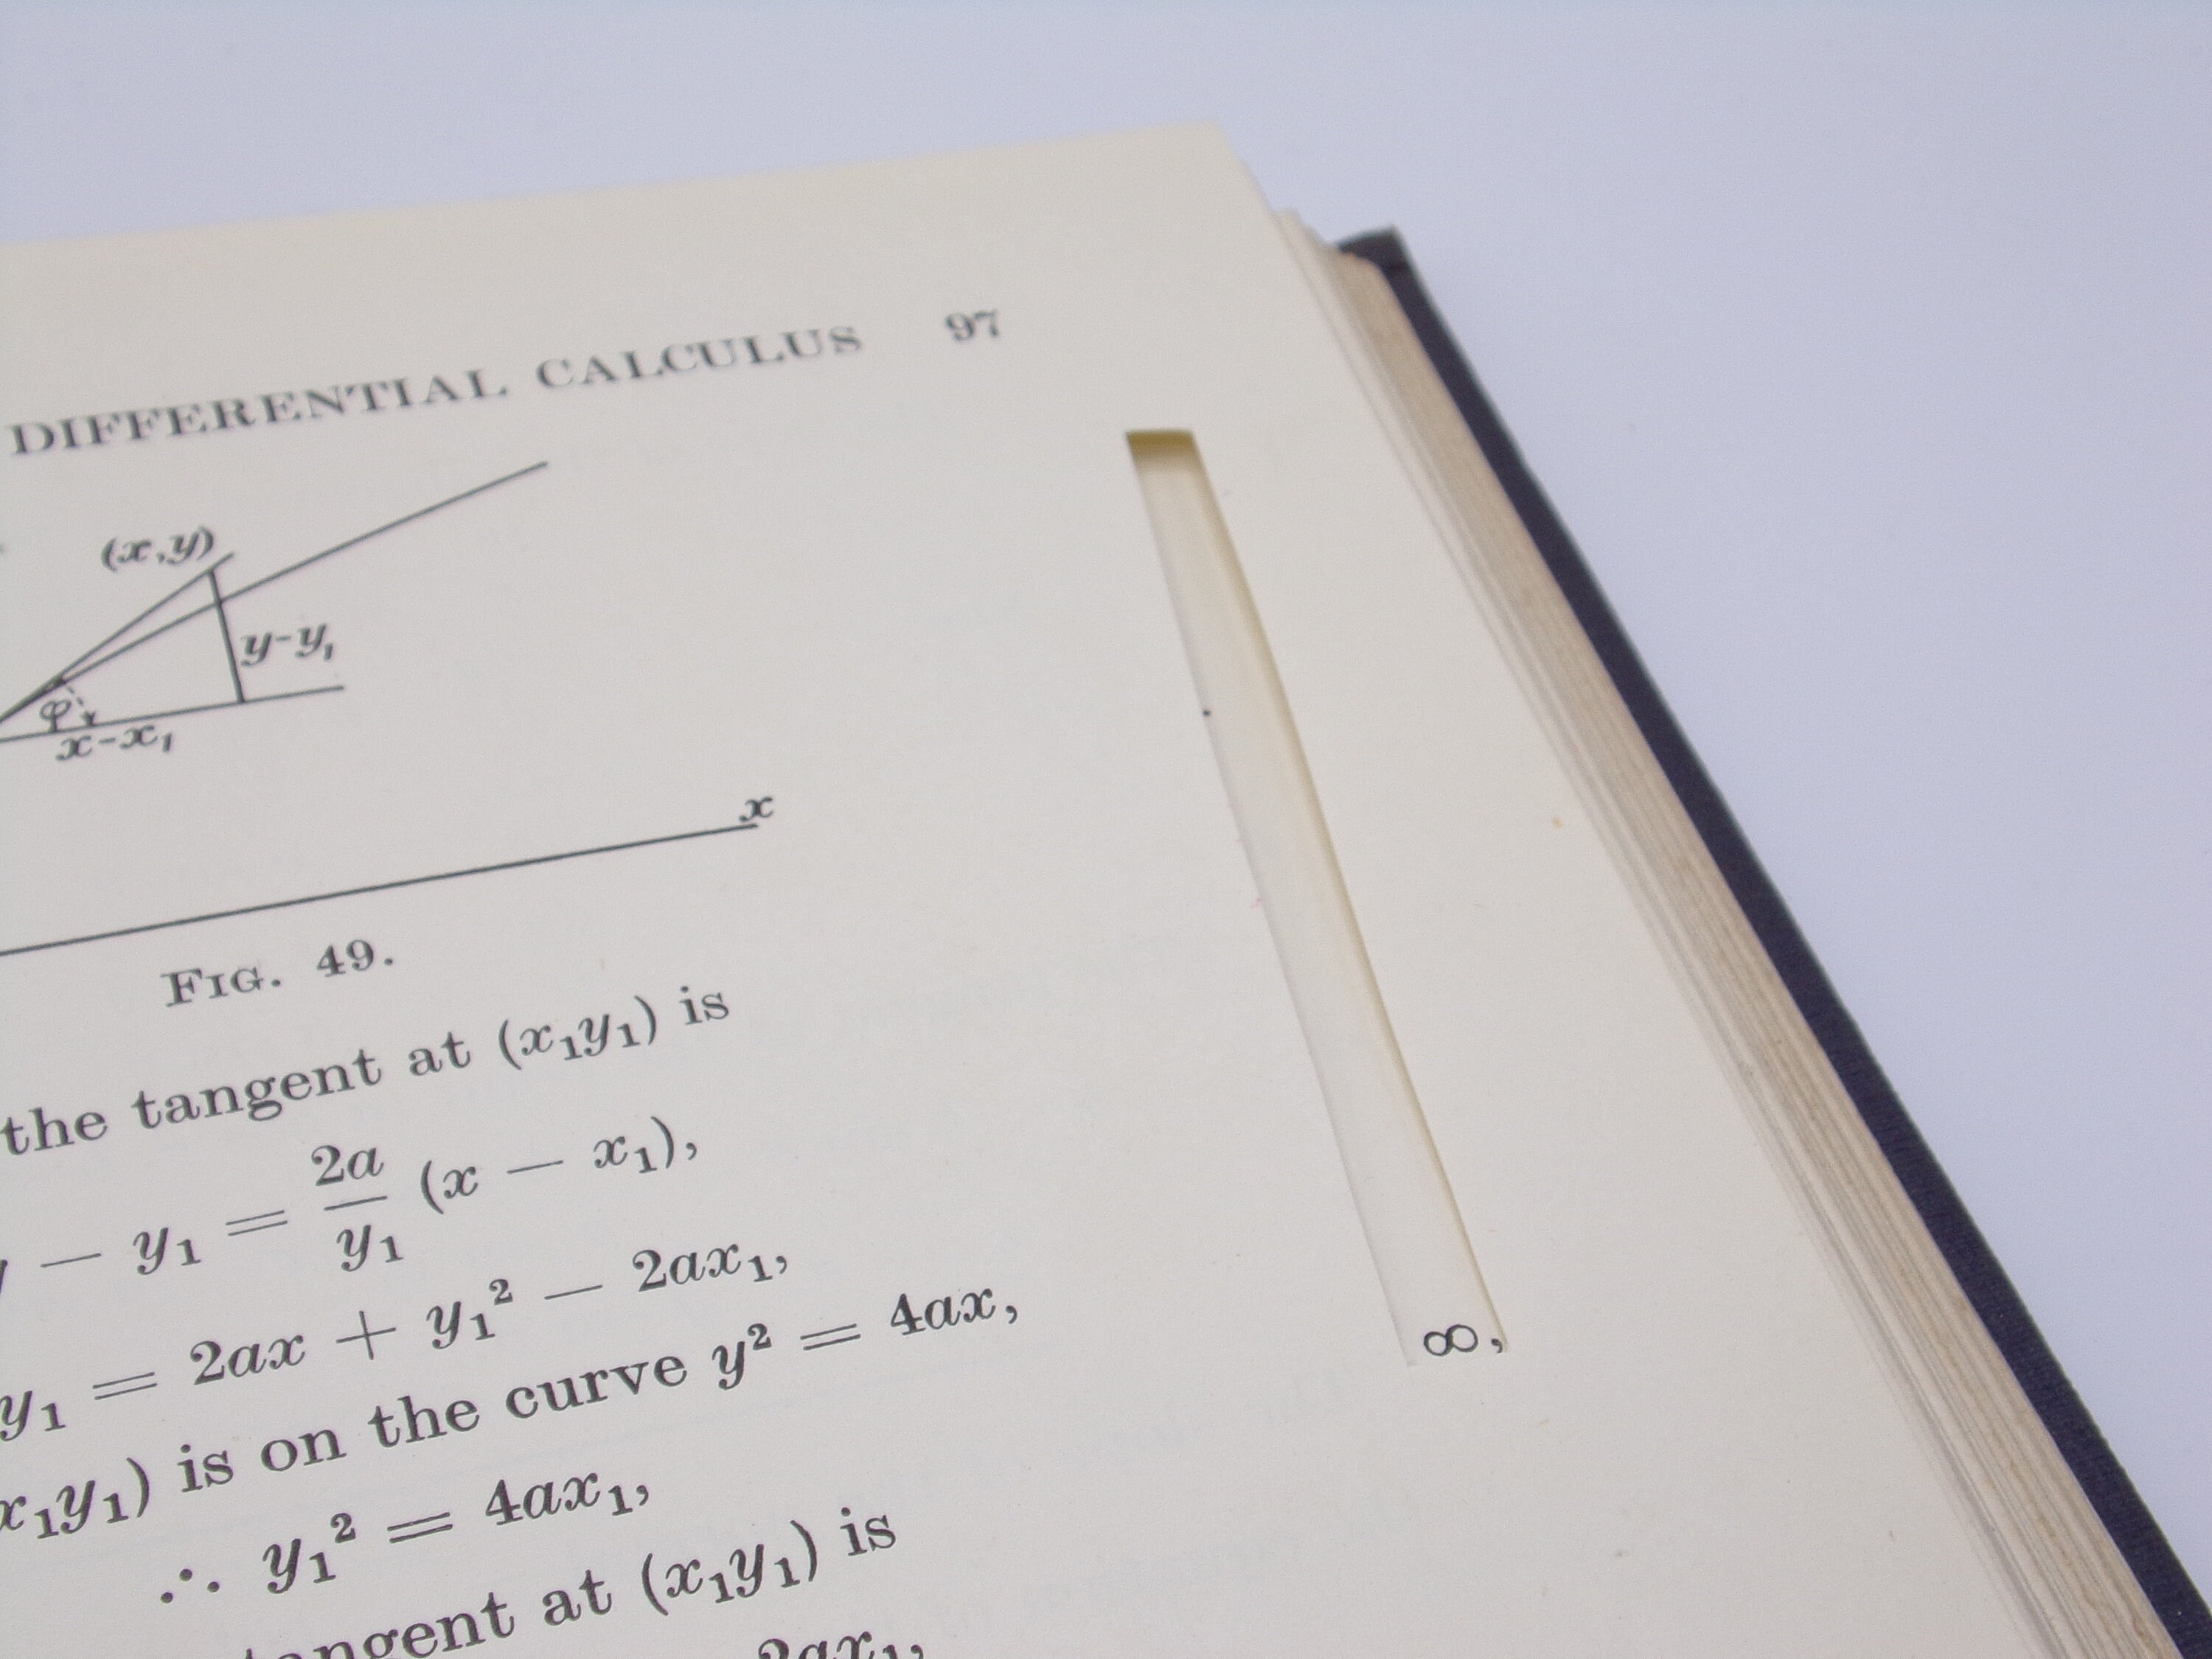 DIFFERENTIAL CALCULUS 97
(x,y)
y-y₁
φ
x-x₁
x
FIG. 49.
the tangent at (x₁y₁) is
— y₁ = 2a/y₁ (x — x₁),
y₁ = 2ax + y₁² — 2ax₁,
x₁y₁) is on the curve y² = 4ax,
∞,
∴ y₁² = 4ax₁,
tangent at (x₁y₁) is
2ax₁,